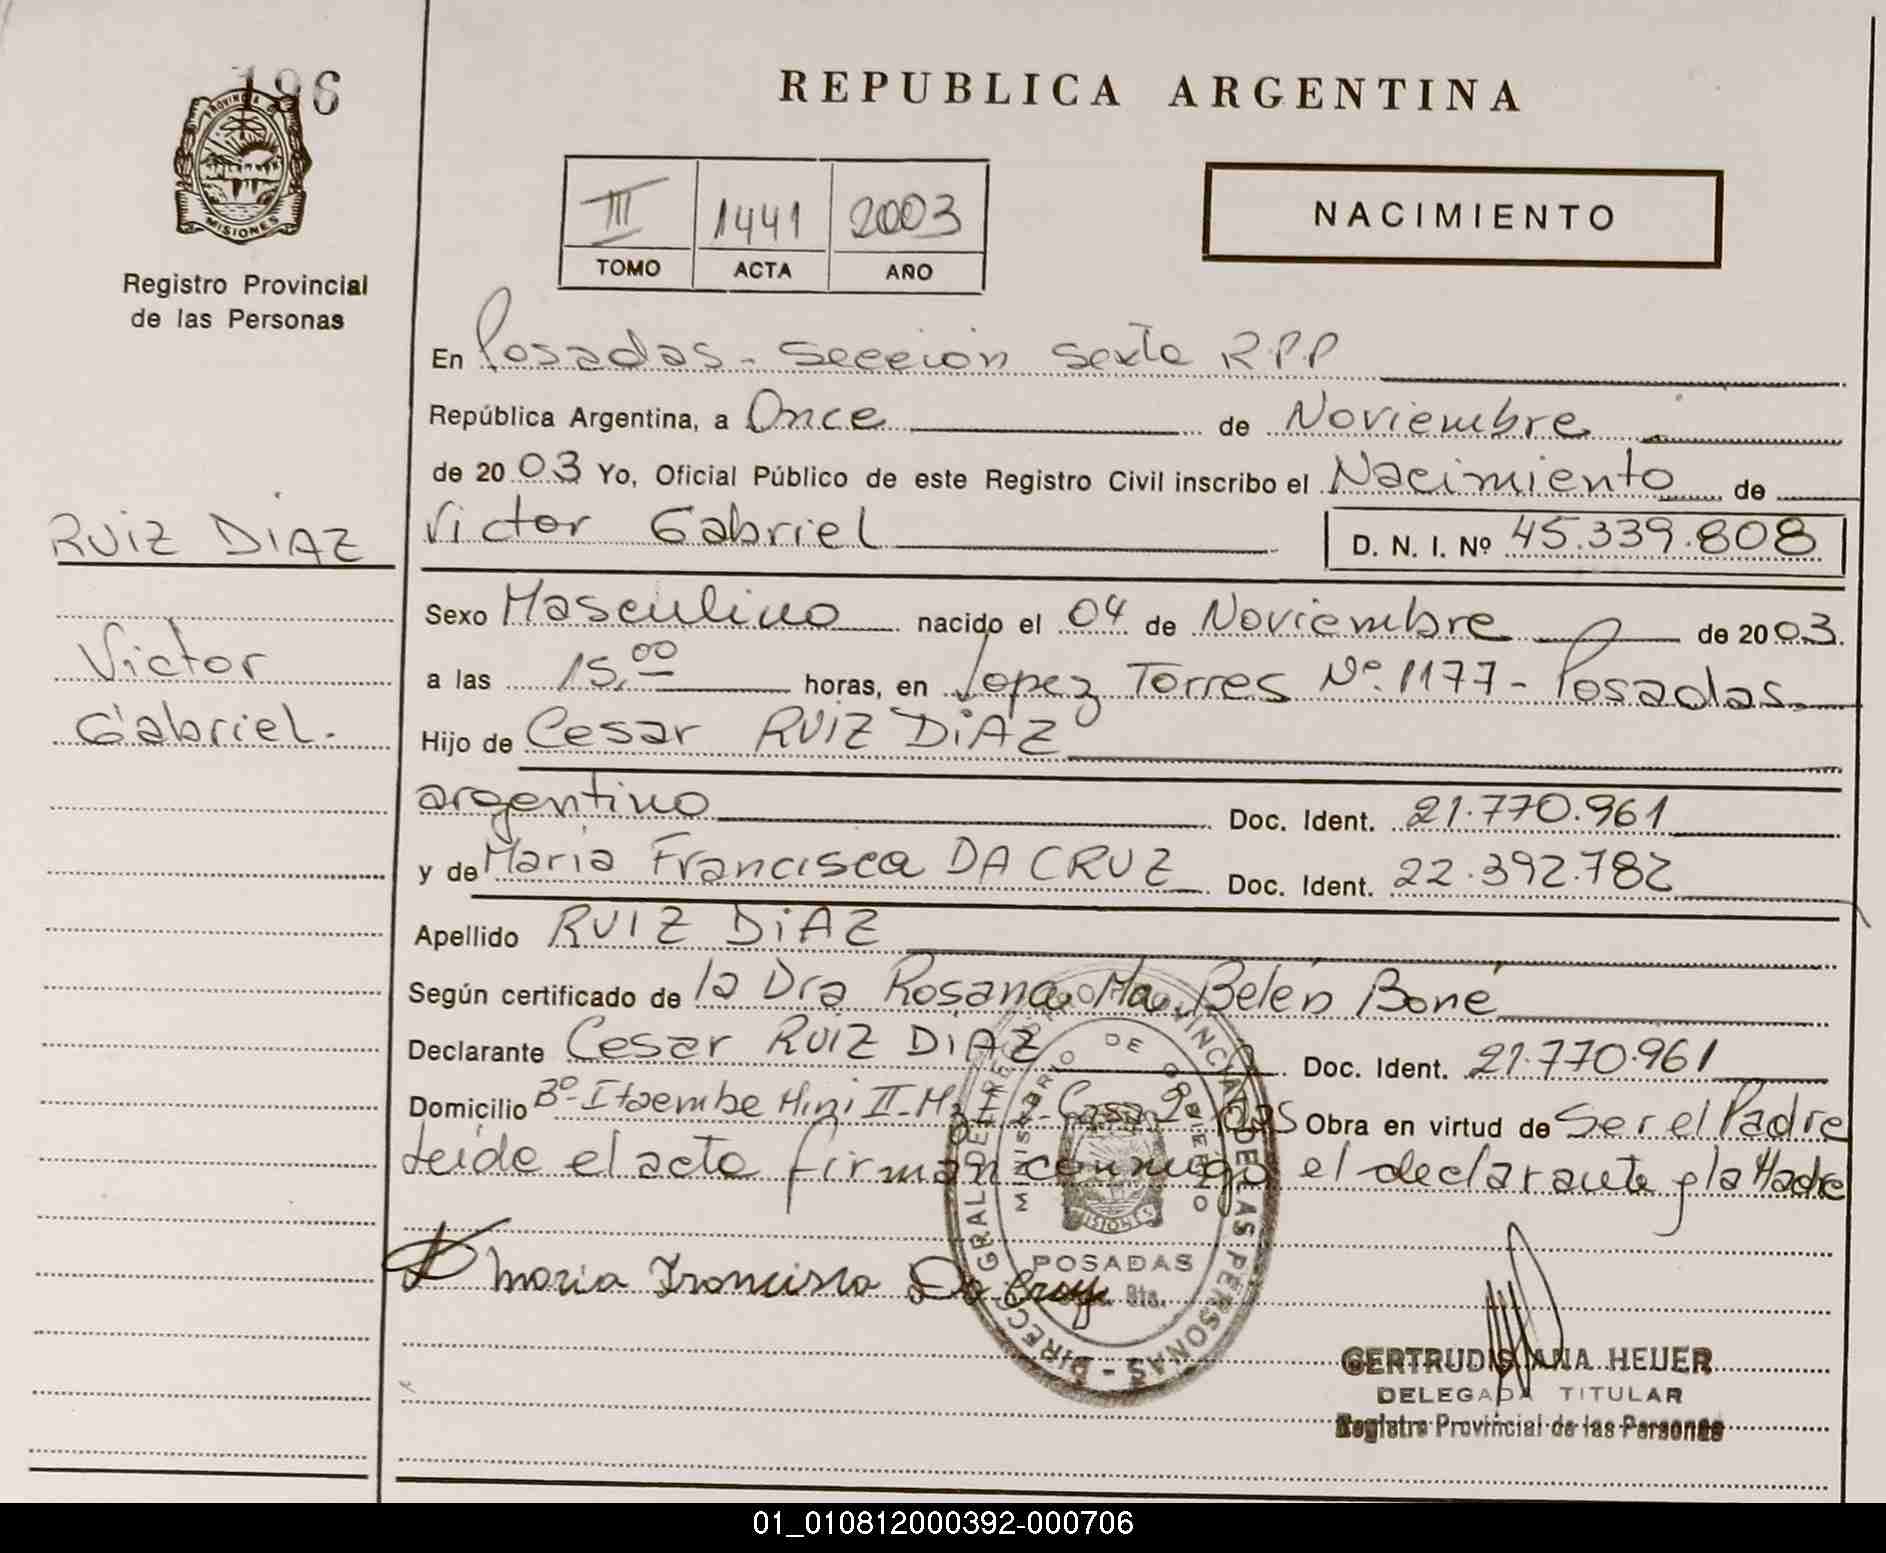 196
PROVINCIA DE
MISIONES
Registro Provincial
de las Personas
RUIZ DIAZ
Victor
Gabriel.
REPUBLICA ARGENTINA
III 1441 2003
TOMO ACTA AÑO
NACIMIENTO
En Posadas - Sección Sexta R.P.P
República Argentina, a Once de Noviembre
de 2003 Yo, Oficial Público de este Registro Civil inscribo el Nacimiento de
Victor Gabriel D. N. I. Nº 45.339.808
Sexo Masculino nacido el 04 de Noviembre de 2003.
a las 15,00 horas, en Lopez Torres Nº. 1177 - Posadas
Hijo de Cesar RUIZ DIAZ
argentino Doc. Ident. 21.770.961
y de Maria Francisca DA CRUZ Doc. Ident. 22.392.782
Apellido RUIZ DIAZ
Según certificado de la Dra Rosana Ma. Belén Boné
Declarante Cesar RUIZ DIAZ Doc. Ident. 21.770.961
Domicilio Bº Itaembe Mini II - Mz Casa 2 Obra en virtud de Ser el Padre
Leido el acta firman conmigo el declarante y la Madre
Maria Francisca Da Cruz
DIREC. GRAL. DE REGISTRO PROVINCIAL DE LAS PERSONAS -
MINISTERIO DE GOBIERNO
MISIONES
POSADAS
GERTRUDIS ANA HEUER
DELEGADA TITULAR
Registro Provincial de las Personas
01_010812000392-000706